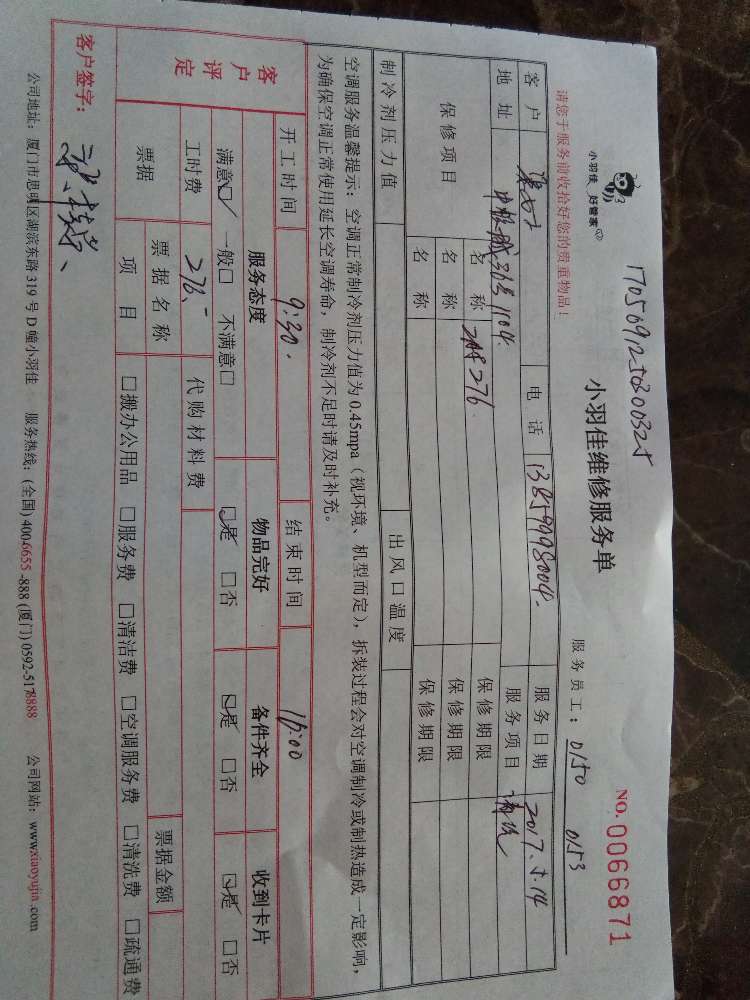 17050912580300325
小羽佳 好管家
小羽佳维修服务单
NO.0066871
请您于服务前收拾好您的贵重物品！
服务员工： 0150 0153
客户 电话 13859998004. 服务日期 2017.5.14
地址 服务项目
保修项目 名称 276 保修期限
名称 保修期限
名称 保修期限
制冷剂压力值 出风口温度
空调服务温馨提示：空调正常制冷剂压力值为0.45mpa（视环境、机型而定），拆装过程会对空调制冷或制热造成一定影响，
为确保空调正常使用延长空调寿命，制冷剂不足时请及时补充。
开工时间 9:30. 结束时间 16:00
客户评定 服务态度 物品完好 备件齐全 收到卡片
满意☑ 一般□ 不满意□ ☑是 □否 ☑是 □否 ☑是 □否
工时费 276.- 代购材料费
票据 票据名称 票据金额
项目 □搬办公用品 □服务费 □清洁费 □空调服务费 □清洗费 □疏通费
客户签字：
公司地址：厦门市思明区湖滨东路319号D幢小羽佳 服务热线：(全国) 4004655-888 (厦门) 0592-5178888 公司网站：www.xiaoyujia.com